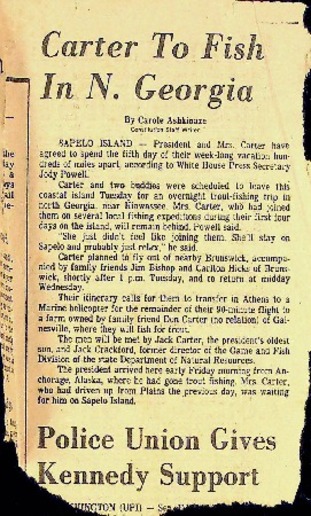 Carter To Fish
In N. Georgia
By Carole Ashkinaze
Constitution Staff Writer
SAPELO ISLAND — President and Mrs. Carter have
agreed to spend the fifth day of their week-long vacation hun-
dreds of miles apart, according to White House Press Secretary
Jody Powell.
Carter and two buddies were scheduled to leave this
coastal island Tuesday for an overnight trout-fishing trip in
north Georgia, near Hiawassee. Mrs. Carter, who had joined
them on several local fishing expeditions during their first four
days on the island, will remain behind, Powell said.
"She just didn't feel like joining them. She'll stay on
Sapelo and probably just relax," he said.
Carter planned to fly out of nearby Brunswick, accompa-
nied by family friends Jim Bishop and Carlton Hicks of Bruns-
wick, shortly after 1 p.m. Tuesday, and to return at midday
Wednesday.
Their itinerary calls for them to transfer in Athens to a
Marine helicopter for the remainder of their 90-minute flight to
a farm owned by family friend Don Carter (no relation) of Gai-
nesville, where they will fish for trout.
The men will be met by Jack Carter, the president's oldest
son, and Jack Crockford, former director of the Game and Fish
Division of the state Department of Natural Resources.
The president arrived here early Friday morning from An-
chorage, Alaska, where he had gone trout fishing. Mrs. Carter,
who had driven up from Plains the previous day, was waiting
for him on Sapelo Island.
Police Union Gives
Kennedy Support
HINGTON (UPI) —